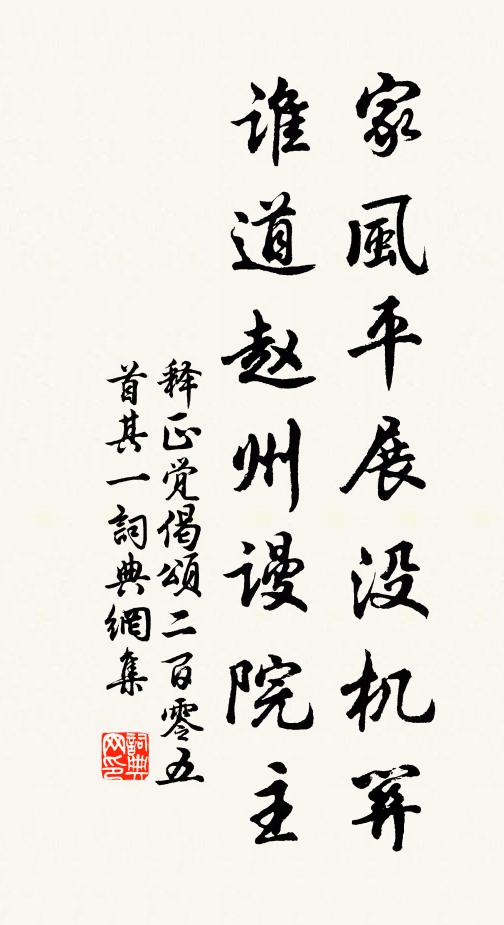 家風平展没机関
谁道赵州谩院主
释正觉偈颂二百零五
首其一詞典網集
詞典网印